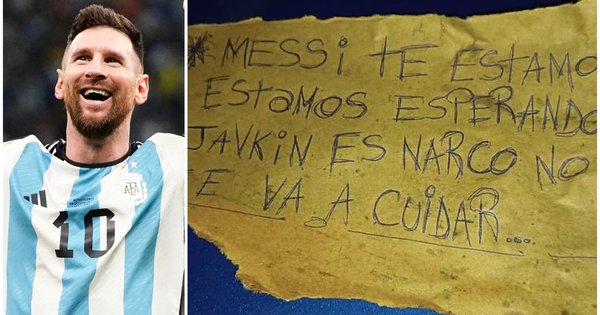 10
AFA
*MESSi TE ESTAMO
ESTaMOS ESPERANDO
JAVKiN ES NARCO NO
TE VA A CUiDAR...